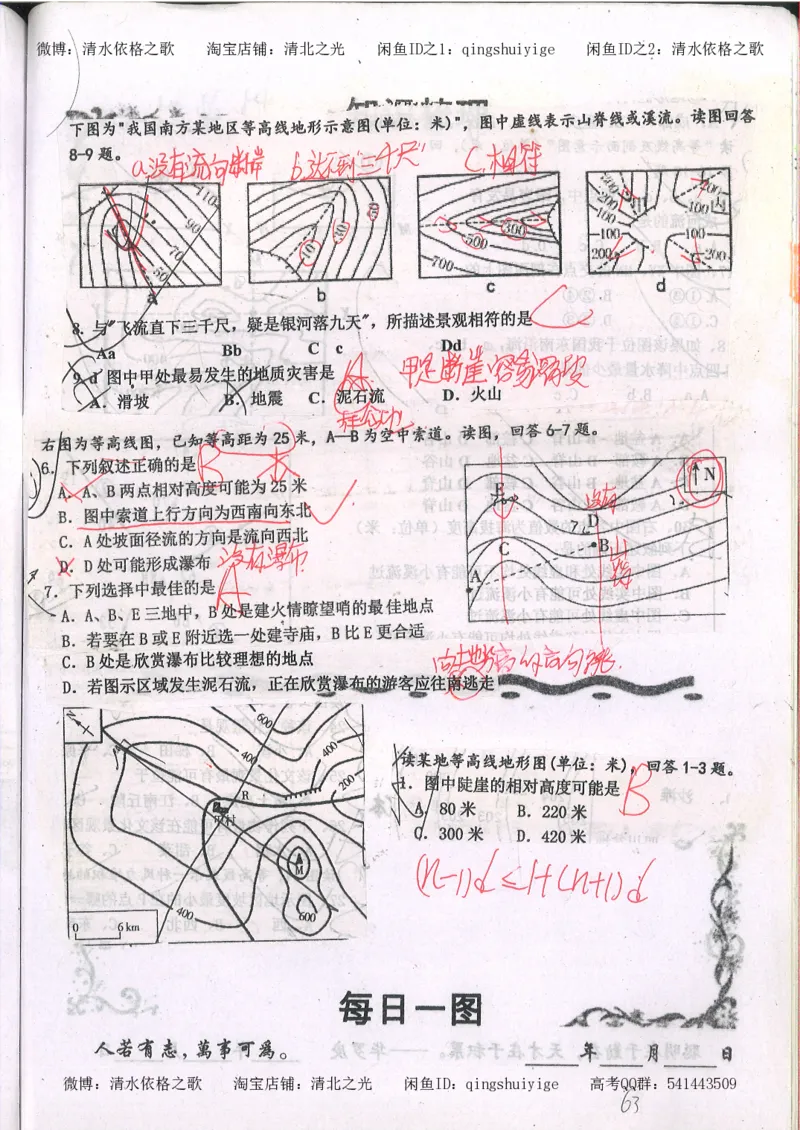 微博：清水依格之歌 淘宝店铺：清北之光 闲鱼ID之1：qingshuiyige 闲鱼ID之2：清水依格之歌
下图为"我国南方某地区等高线地形示意图(单位：米)"，图中虚线表示山脊线或溪流。读图回答
8-9题。
a没有流向断崖 b达不到三千尺" C.相符
110 90 70 50
10 30 50
500 300 700
200 200 100 100 200 200 100 100 200 200
a b c d
8. 与"飞流直下三千尺，疑是银河落九天"，所描述景观相符的是 C
Aa Bb C c Dd
9. d 图中甲处最易发生的地质灾害是 A
甲是断崖容易
A. 滑坡 B. 地震 C. 泥石流 D. 火山
右图为等高线图，已知等高距为 25 米，A—B 为空中索道。读图，回答 6-7 题。
6. 下列叙述正确的是 B
A. A、B 两点相对高度可能为 25 米
B. 图中索道上行方向为西南向东北
C. A 处坡面径流的方向是流向西北
D. D 处可能形成瀑布 没有瀑布
7. 下列选择中最佳的是 A
A. A、B、E 三地中，B 处是建火情瞭望哨的最佳地点
B. 若要在 B 或 E 附近选一处建寺庙，B 比 E 更合适
C. B 处是欣赏瀑布比较理想的地点
D. 若图示区域发生泥石流，正在欣赏瀑布的游客应往南逃走
N
E
D
C
B
A
山脊
600
400
400
200
R
M
400
600
0 6km
读某地等高线地形图(单位：米)，回答 1-3 题。
1. 图中陡崖的相对高度可能是 B
A. 80 米 B. 220 米
C. 300 米 D. 420 米
(n-1)d ≤H<(n+1)d
每日一图
人若有志，萬事可為。
年 月 日
微博：清水依格之歌 淘宝店铺：清北之光 闲鱼ID：qingshuiyige 高考QQ群：541443509
63